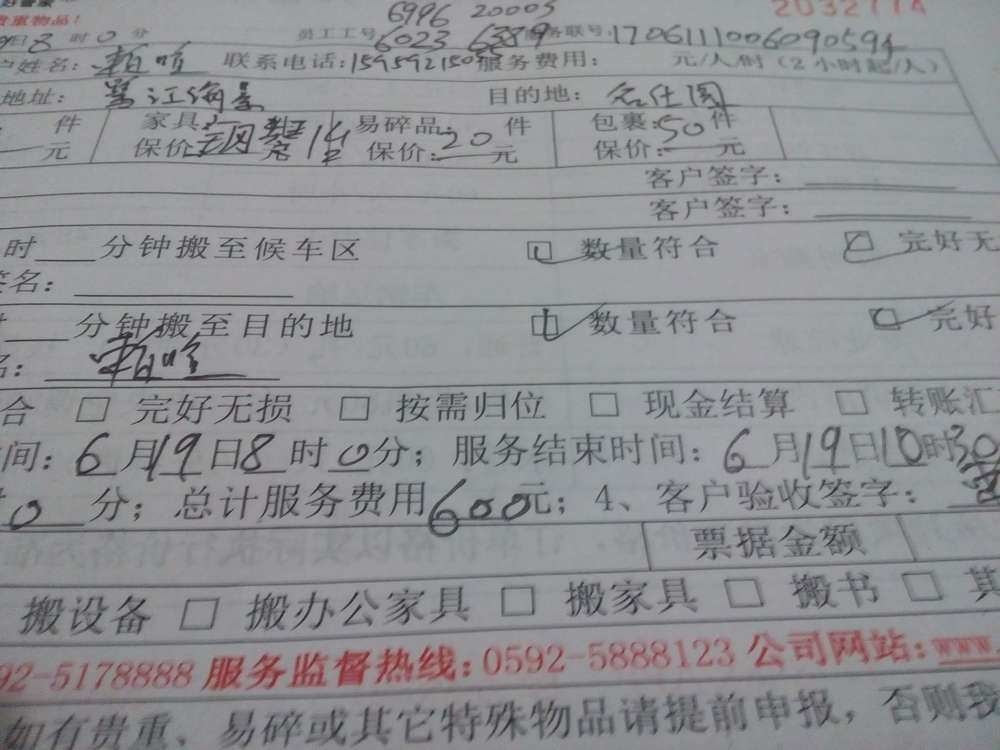 贵重物品!
2032114
6996 20003
日8时0分 员工工号: 6023 6389 服务联号:1706111006090594
户姓名: 联系电话:15959215085 服务费用: 元/人/时(2小时起/人)
地址: 鹭江海景 目的地: 名仕阁
件 家具: 易碎品: 件 包裹: 件
元 保价: 保价:20元 保价:50元
客户签字:
客户签字:
时 分钟搬至候车区 数量符合 完好无
签名:
分钟搬至目的地 数量符合 完好
名:
合 □ 完好无损 □ 按需归位 □ 现金结算 □ 转账汇
间:6月19日8时0分;服务结束时间:6月19日10时30
0分;总计服务费用600元;4、客户验收签字:
票据金额
搬设备 □ 搬办公家具 □ 搬家具 □ 搬书 □ 其
92-5178888 服务监督热线:0592-5888123 公司网站:www.
如有贵重、易碎或其它特殊物品请提前申报,否则我